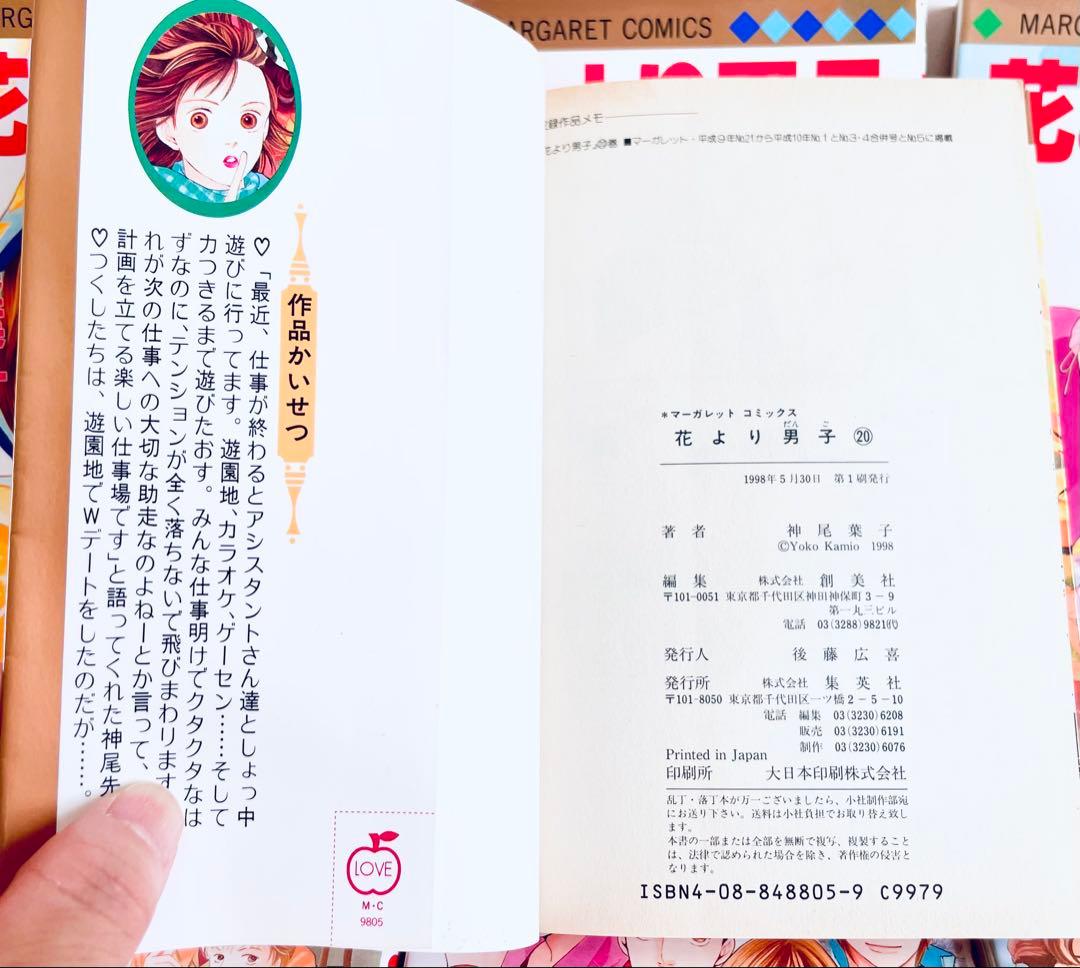 RG
ARGARET COMICS
MARG
花
花
作品かいせつ
♡「最近、仕事が終わるとアシスタントさん達としょっ中
遊びに行ってます。遊園地、カラオケ、ゲーセン……そして
力つきるまで遊びたおす。みんな仕事明けでクタクタなは
ずなのに、テンションが全く落ちないで飛びまわります
れが次の仕事への大切な助走なのよねーとか言って、
計画を立てる楽しい仕事場です」と語ってくれた神尾先
♡つくしたちは、遊園地でWデートをしたのだが……。
LOVE
M・C
9805
録作品メモ
花より男子⑳巻 ■マーガレット・平成9年No.21から平成10年No.1とNo.3・4合併号とNo.5に掲載
＊マーガレット コミックス
花より男子 ⑳
だん ご
1998年5月30日 第1刷発行
著者 神尾葉子
©Yoko Kamio 1998
編集 株式会社 創美社
〒101-0051 東京都千代田区神田神保町3－9
第一丸三ビル
電話 03(3288)9821㈹
発行人 後藤広喜
発行所 株式会社 集英社
〒101-8050 東京都千代田区一ツ橋2－5－10
電話 編集 03(3230)6208
販売 03(3230)6191
制作 03(3230)6076
Printed in Japan
印刷所 大日本印刷株式会社
乱丁・落丁本が万一ございましたら、小社制作部宛
にお送り下さい。送料は小社負担でお取り替え致し
ます。
本書の一部または全部を無断で複写、複製すること
は、法律で認められた場合を除き、著作権の侵害と
なります。
ISBN4-08-848805-9 C9979